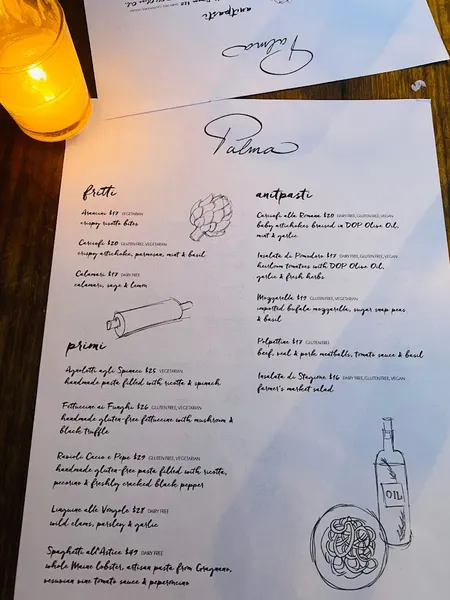 anitpasti
Palma
Palma
fritti
Arancini $17 VEGETARIAN
crispy risotto bites
Carciofi $20 GLUTEN FREE, VEGETARIAN
crispy artichoke, parmesan, mint & basil
Calamari $17 DAIRY FREE
calamari, sage & lemon
primi
Agnolotti agli Spinaci $25 VEGETARIAN
handmade pasta filled with ricotta & spinach
Fettuccine ai Funghi $26 GLUTEN FREE, VEGETARIAN
handmade gluten-free fettuccine with mushroom &
black truffle
Raviole Cacio e Pepe $29 GLUTEN FREE, VEGETARIAN
handmade gluten-free pasta filled with ricotta,
pecorino & freshly cracked black pepper
Linguine alle Vongole $28 DAIRY FREE
wild clams, parsley & garlic
Spaghetti all'Astice $49 DAIRY FREE
whole Maine lobster, artisan pasta from Gragnano,
vesuvian vine tomato sauce & peperoncino
anitpasti
Carciofi alla Romana $20 DAIRY FREE, GLUTEN FREE, VEGAN
baby artichokes braised in DOP Olive Oil,
mint & garlic
Insalata di Pomodoro $17 DAIRY FREE, GLUTEN FREE, VEGAN
heirloom tomatoes with DOP Olive Oil,
garlic & fresh herbs
Mozzarella $19 GLUTEN FREE, VEGETARIAN
imported bufala mozzarella, sugar snap peas
& basil
Polpettine $17 GLUTEN FREE
beef, veal & pork meatballs, tomato sauce & basil
Insalata di Stagione $16 DAIRY FREE, GLUTEN FREE, VEGAN
farmer's market salad
OIL